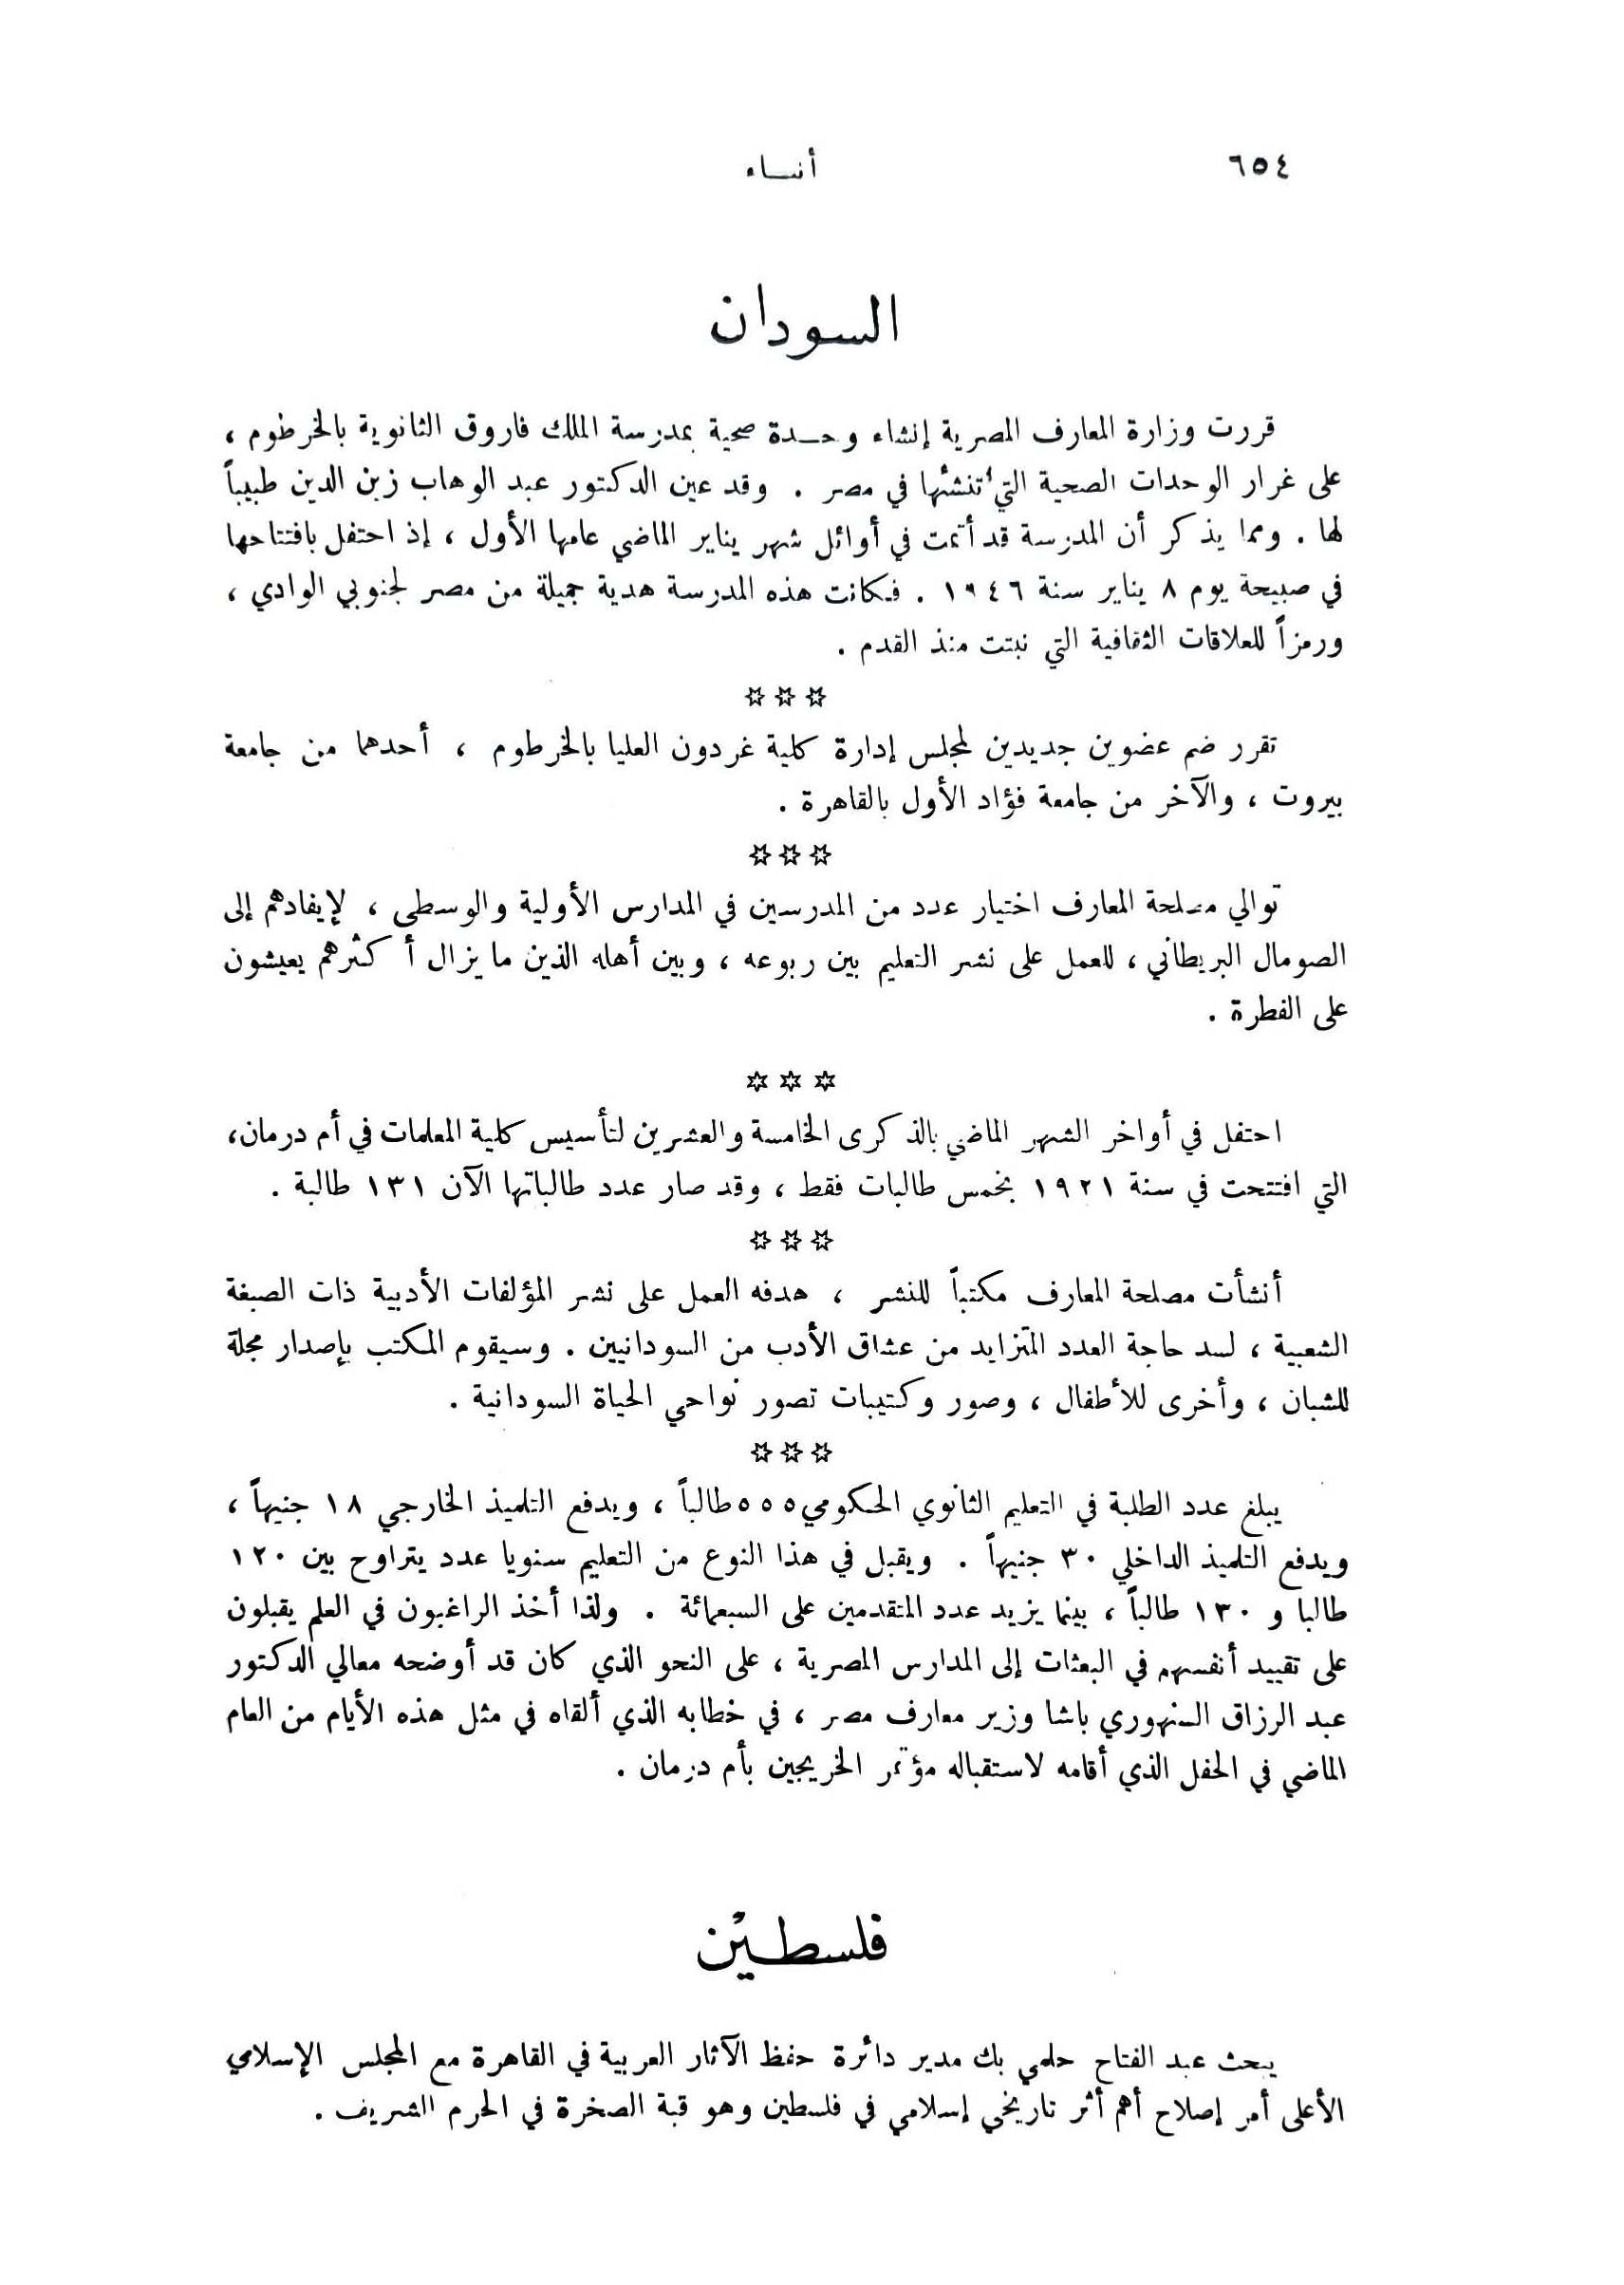 ٦٥٤
أنباء
السودان
قررت وزارة المعارف المصرية إنشاء وحدة صحية بمدرسة الملك فاروق الثانوية بالخرطوم ،
على غرار الوحدات الصحية التي تُنشئها في مصر . وقد عين الدكتور عبد الوهاب زين الدين طبيباً
لها . ومما يذكر أن المدرسة قد أتمت في أوائل شهر يناير الماضي عامها الأول ، إذ احتفل بافتتاحها
في صبيحة يوم ٨ يناير سنة ١٩٤٦ . فكانت هذه المدرسة هدية جميلة من مصر لجنوبي الوادي ،
ورمزاً للعلاقات الثقافية التي نبتت منذ القدم .
✡ ✡ ✡
تقرر ضم عضوين جديدين لمجلس إدارة كلية غردون العليا بالخرطوم ، أحدهما من جامعة
بيروت ، والآخر من جامعة فؤاد الأول بالقاهرة .
✡ ✡ ✡
توالي مصلحة المعارف اختيار عدد من المدرسين في المدارس الأولية والوسطى ، لإيفادهم إلى
الصومال البريطاني ، للعمل على نشر التعليم بين ربوعه ، وبين أهله الذين ما يزال أكثرهم يعيشون
على الفطرة .
✡ ✡ ✡
احتفل في أواخر الشهر الماضي بالذكرى الخامسة والعشرين لتأسيس كلية المعلمات في أم درمان،
التي افتتحت في سنة ١٩٢١ بخمس طالبات فقط ، وقد صار عدد طالباتها الآن ١٣١ طالبة .
✡ ✡ ✡
أنشأت مصلحة المعارف مكتباً للنشر ، هدفه العمل على نشر المؤلفات الأدبية ذات الصبغة
الشعبية ، لسد حاجة العدد المتزايد من عشاق الأدب من السودانيين . وسيقوم المكتب بإصدار مجلة
للشبان ، وأخرى للأطفال ، وصور وكتيبات تصور نواحي الحياة السودانية .
✡ ✡ ✡
يبلغ عدد الطلبة في التعليم الثانوي الحكومي ٥٥٥ طالباً ، ويدفع التلميذ الخارجي ١٨ جنيهاً ،
ويدفع التلميذ الداخلي ٣٠ جنيهاً . ويقبل في هذا النوع من التعليم سنويا عدد يتراوح بين ١٢٠
طالبا و ١٣٠ طالباً ، بينما يزيد عدد المتقدمين على السبعمائة . ولذا أخذ الراغبون في العلم يقبلون
على تقييد أنفسهم في البعثات إلى المدارس المصرية ، على النحو الذي كان قد أوضحه معالي الدكتور
عبد الرزاق السنهوري باشا وزير معارف مصر ، في خطابه الذي ألقاه في مثل هذه الأيام من العام
الماضي في الحفل الذي أقامه لاستقباله مؤتمر الخريجين بأم درمان .
فلسطين
يبحث عبد الفتاح حلمي بك مدير دائرة حفظ الآثار العربية في القاهرة مع المجلس الإسلامي
الأعلى أمر إصلاح أهم أثر تاريخي إسلامي في فلسطين وهو قبة الصخرة في الحرم الشريف .